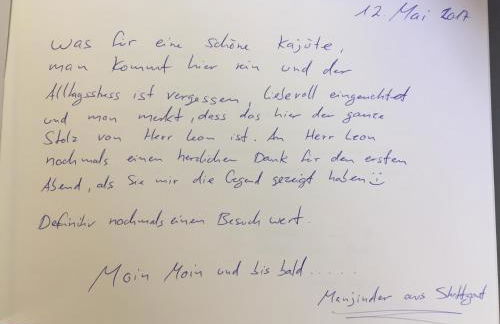 12. Mai 2017
Was für eine schöne Kajüte,
man kommt hier rein und der
Alltagsstress ist vergessen, liebevoll eingerichtet
und man merkt, dass das hier der ganze
Stolz von Herr Leon ist. An Herr Leon
nochmals einen herzlichen Dank für den ersten
Abend, als Sie mir die Gegend gezeigt haben☺
Definitiv nochmals einen Besuch wert.
Moin Moin und bis bald.....
Manjinder aus Stuttgart